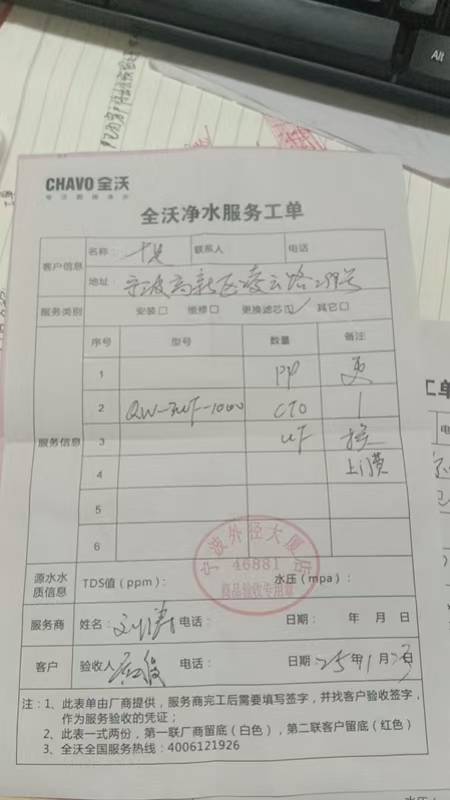 CHAVO 全沃
专注商用净水
全沃净水服务工单
客户信息 名称： 联系人 电话
地址：宁波高新区凌云路
服务类别 安装□ 维修□ 更换滤芯☑ 其它□
服务信息
序号 型号 数量 备注
1 PP 更
2 QW-3UF-1000 CTO 1
3 UF 换
4 上门费
5
6
46881
商品验收专用章
源水水质信息 TDS值（ppm）： 水压（mpa）：
服务商 姓名：刘涛 电话： 日期： 年 月 日
客户 验收人 电话： 日期 25年1月
注：1、此表单由厂商提供，服务商完工后需要填写签字，并找客户验收签字，
作为服务验收的凭证；
2、此表一式两份，第一联厂商留底（白色），第二联客户留底（红色）
3、全沃全国服务热线：4006121926
工单
电
Alt